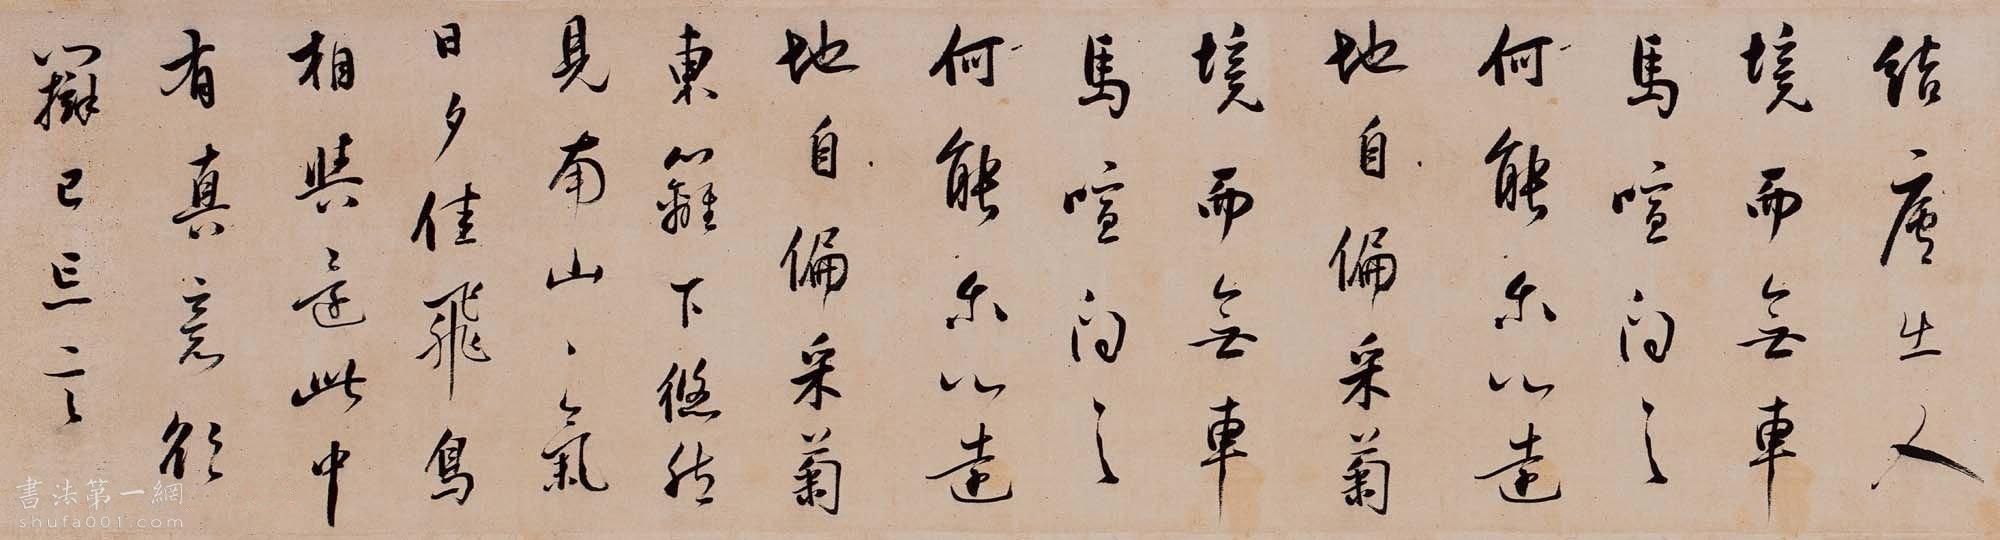 結廬在人
境而無車
馬喧問君
何能尔心遠
地自偏采菊
境而無車
馬喧問君
何能尔心遠
地自偏采菊
東籬下悠然
見南山々氣
日夕佳飛鳥
相與還此中
有真意欲
辨已忘言
書法第一網
shufa001.com